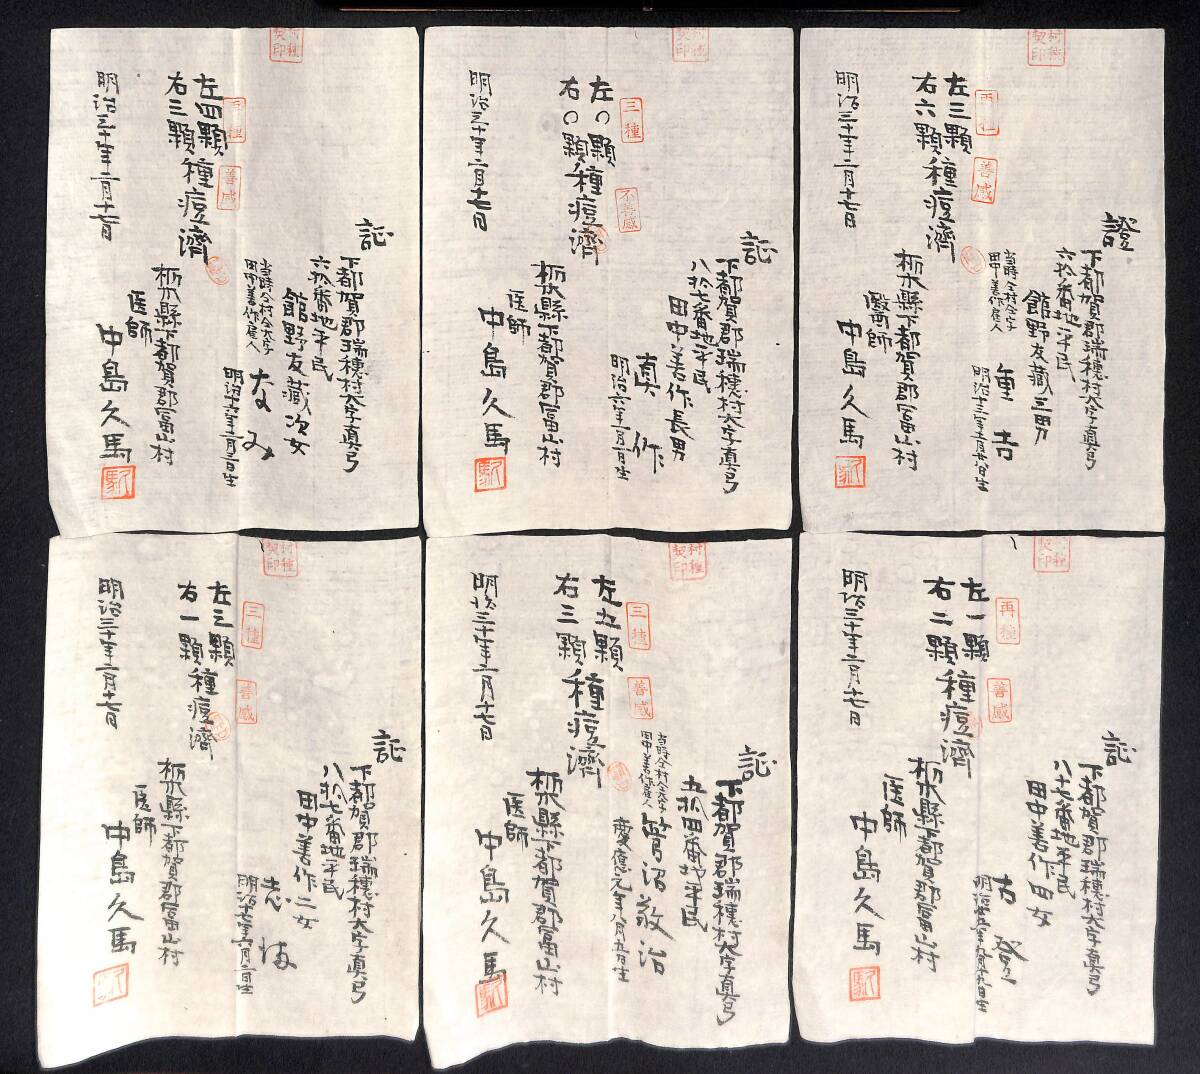 證
下都賀郡瑞穂村大字真弓
六拾番地平民
舘野友藏三男
当時仝村仝大字
田中善作雇人
重吉
再種
善感
左三顆
右六顆
種痘濟
栃木縣下都賀郡冨山村
醫師
中島久馬
明治三十年二月十七日
証
下都賀郡瑞穂村大字真弓
八拾七番地平民
田中善作長男
真作
三種
不善感
左〇顆
右〇顆
種痘濟
栃木縣下都賀郡冨山村
医師
中島久馬
明治三十年二月十七日
証
下都賀郡瑞穂村大字真弓
六拾番地平民
舘野友藏次女
当時仝村仝大字
田中善作雇人
なみ
再種
善感
左四顆
右三顆
種痘濟
栃木縣下都賀郡冨山村
医師
中島久馬
明治三十年二月十七日
証
下都賀郡瑞穂村大字真弓
八十七番地平民
田中善作四女
再種
善感
左一顆
右二顆
種痘濟
栃木縣下都賀郡冨山村
医師
中島久馬
明治三十年二月十七日
証
下都賀郡瑞穂村大字真弓
五拾四番地平民
当時仝村仝大字
田中善作雇人
慶應元年八月五日生
三種
善感
左五顆
右三顆
種痘濟
栃木縣下都賀郡冨山村
医師
中島久馬
明治三十年二月十七日
証
下都賀郡瑞穂村大字真弓
八拾七番地平民
田中善作二女
三種
善感
左三顆
右一顆
種痘濟
栃木縣下都賀郡冨山村
医師
中島久馬
明治三十年二月十七日